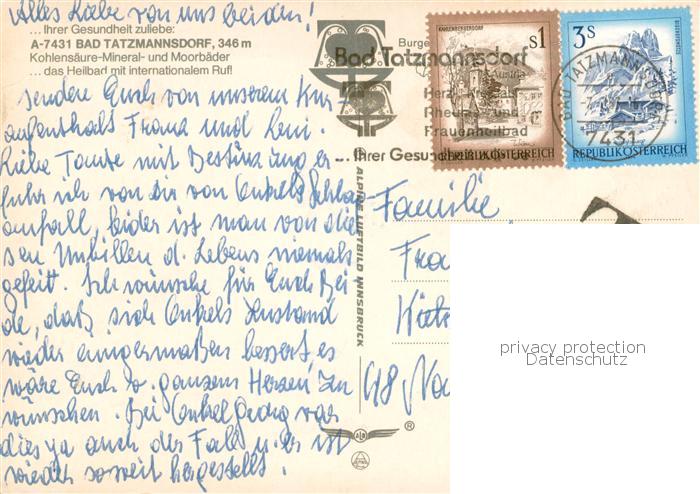 Alles Liebe von uns beiden!
...Ihrer Gesundheit zuliebe:
A-7431 BAD TATZMANNSDORF, 346 m
Kohlensäure-Mineral- und Moorbäder
...das Heilbad mit internationalem Ruf!
senden Euch von unserem Kur-
aufenthalt Franz und Leni.
Liebe Tante mit Bestürzung er-
fuhr ich von Dir von Onkels Schlag-
anfall, leider ist man von die-
sen Unbillen d. Lebens niemals
gefeit. Ich wünsche für Euch Bei
de, daß sich Onkels Zustand
wieder einigermaßen bessert, es
wäre Euch v. ganzem Herzen zu
wünschen. Bei Onkel Georg war
dies ja auch der Fall u. er ist
wieder soweit hergestellt.
Burge
Bad Tatzmannsdorf
Austria
Herz-Kreislauf
Rheuma und
Frauenheilbad
...Ihrer Gesund
KAHLENBERGERDORF
S1
REPUBLIK ÖSTERREICH
3S
BISCHOFSMÜTZE
REPUBLIK ÖSTERREICH
BAD TATZMANNSDORF
7431
ALPINE LUFTBILD INNSBRUCK
Familie
Fra
48
ALI
®
privacy protection
Datenschutz